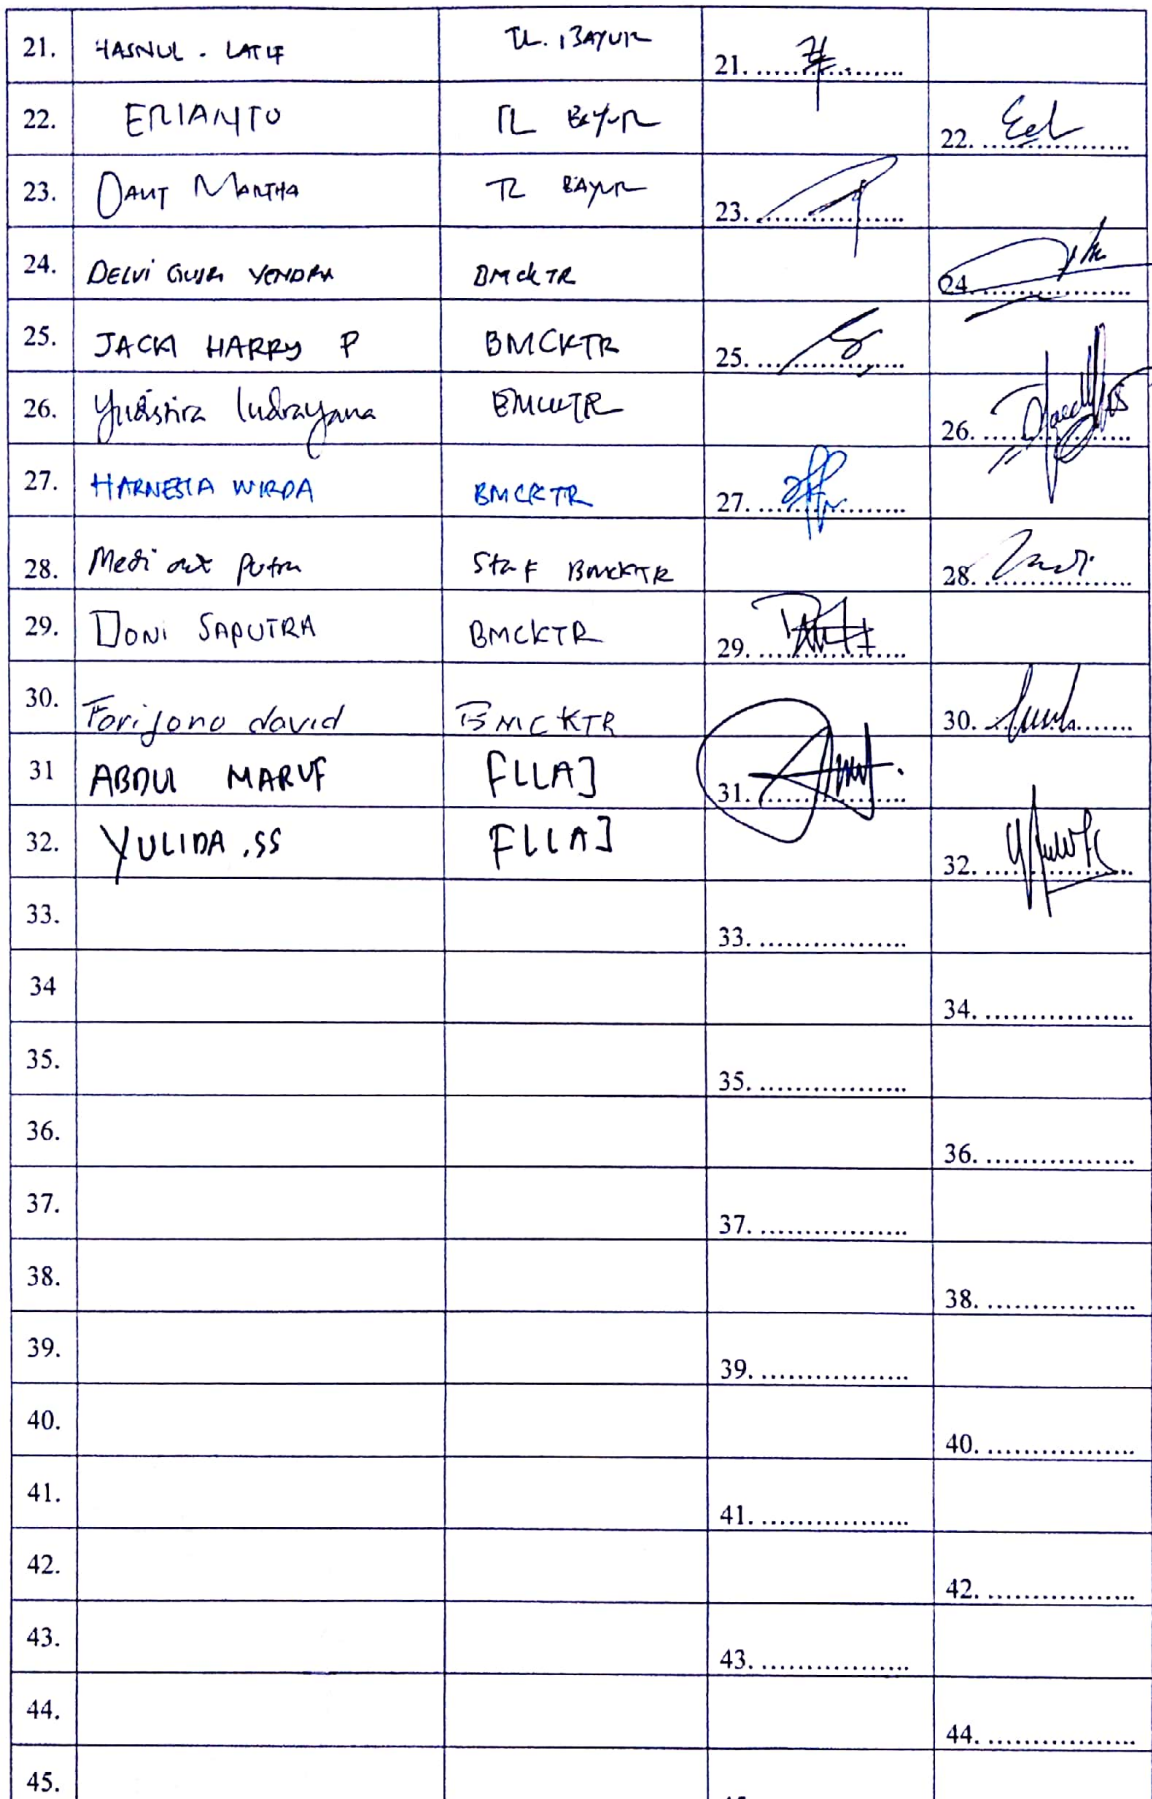 21. HASNUL. LATIF TL. BAYUR 21. ..................
22. ERIANTO TL BAYUR 22. ..................
23. DAUT MARTHA TL BAYUR 23. ..................
24. DELVI YENDRA BMCKTR 24. ..................
25. JACKI HARRY P BMCKTR 25. ..................
26. Yudistira Indrayana BMCKTR 26. ..................
27. HARNESIA WIRDA BMCKTR 27. ..................
28. Medi Putra Staf BMCKTR 28. ..................
29. DONI SAPUTRA BMCKTR 29. ..................
30. Forijono david BMCKTR 30. ..................
31 ABDUL MARUF FLLAJ 31. ..................
32. YULIDA .SS FLLAJ 32. ..................
33. 33. ..................
34 34. ..................
35. 35. ..................
36. 36. ..................
37. 37. ..................
38. 38. ..................
39. 39. ..................
40. 40. ..................
41. 41. ..................
42. 42. ..................
43. 43. ..................
44. 44. ..................
45.